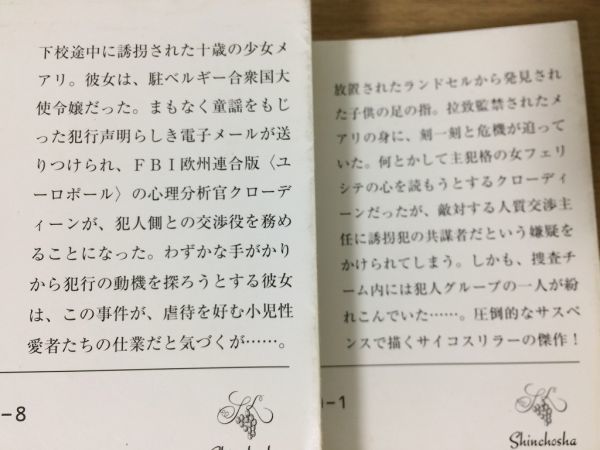 下校途中に誘拐された十歳の少女メ
アリ。彼女は、駐ベルギー合衆国大
使令嬢だった。まもなく童謡をもじ
った犯行声明らしき電子メールが送
りつけられ、ＦＢＩ欧州連合版〈ユ
ーロポール〉の心理分析官クローデ
ィーンが、犯人側との交渉役を務め
ることになった。わずかな手がかり
から犯行の動機を探ろうとする彼女
は、この事件が、虐待を好む小児性
愛者たちの仕業だと気づくが……。
-8
放置されたランドセルから発見され
た子供の足の指。拉致監禁されたメ
アリの身に、刻一刻と危機が迫って
いた。何とかして主犯格の女フェリ
シテの心を読もうとするクローディ
ーンだったが、敵対する人質交渉主
任に誘拐犯の共謀者だという嫌疑を
かけられてしまう。しかも、捜査チ
ーム内には犯人グループの一人が紛
れこんでいた……。圧倒的なサスペ
ンスで描くサイコスリラーの傑作！
-1
Shinchosha